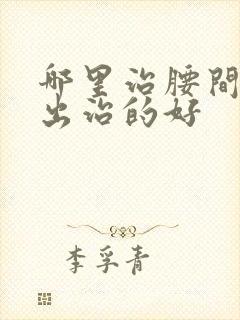 哪里治腰間
出治的好
李孚青